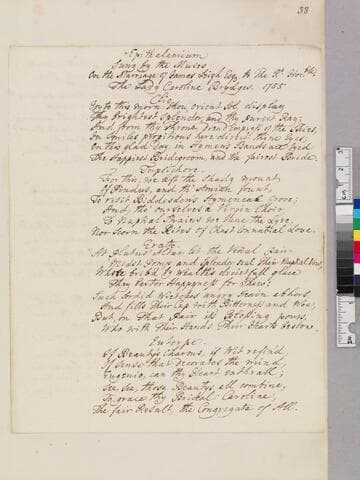 38
Epithalamium
Sung by the Muses
On the Marriage of James Leigh Esq. to The Rt. Honble.
The Lady Caroline Brydges. 1755
Clio
Joy to this morn thou orient Sol display
Thy brightest Splendor, and thy purest Ray;
And from thy Throne great Empress of the Skies,
in Smiles propitious here direct thine Eyes;
On this glad Day, in Hymens Bands are tyed
The Happiest Bridegroom, and the fairest Bride.
Terpsichore
For this we left the shady mount,
Of Pindus, and th' Aonian fount,
To visit Biddesdens Hymeneal Grove;
And, tho' ourselves a Virgin Choir
To Nuptial Strains we tune the Lyre,
Nor Scorn the Rites of Chast Connubial Love.
Erato
At Plutus's Altar let the venal Pair
Midst Pomp and Splendor seal their Nuptial Vows,
While brib'd by Wealths deceitfull glare
They barter Happyness for Shew;
Such Sordid Wretches angry Heav'n abhors
And fills their Cup with Bitterness and Woe,
But, on That Pair its Blessing pours,
Who with Their Hands Their Hearts bestow.
Euterpe
If Beauty's Charms, if Wit refin'd
If Sense that decorates the mind,
Eugenio, can thy Heart enthrall;
See See, those Beautys all combine,
To grace thy Bridal Caroline,
The fair Result, the Congregate of All.